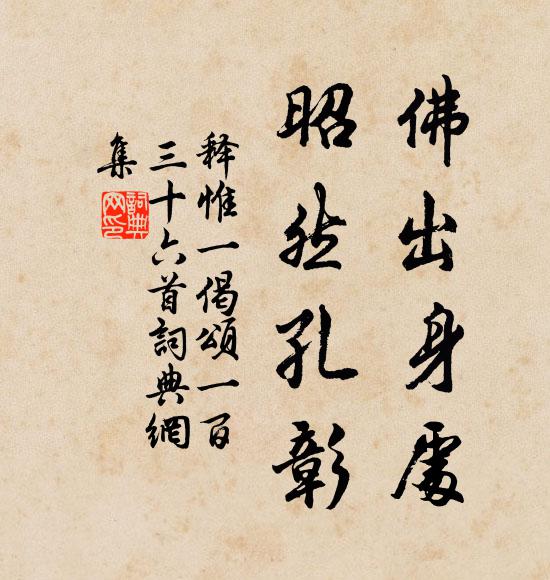 佛出身處
昭然孔彰
释惟一偈頌一百
三十六首詞典網
集
詞典網印